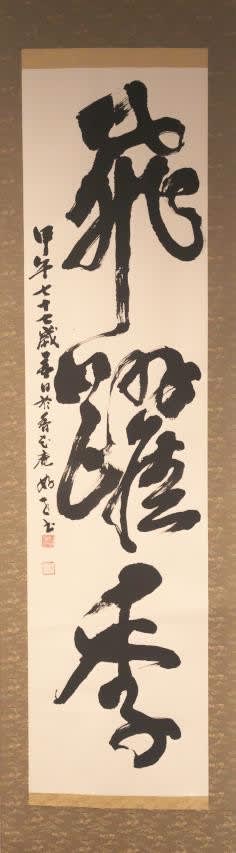 飛躍季
甲午七十七歳春日於香花庵